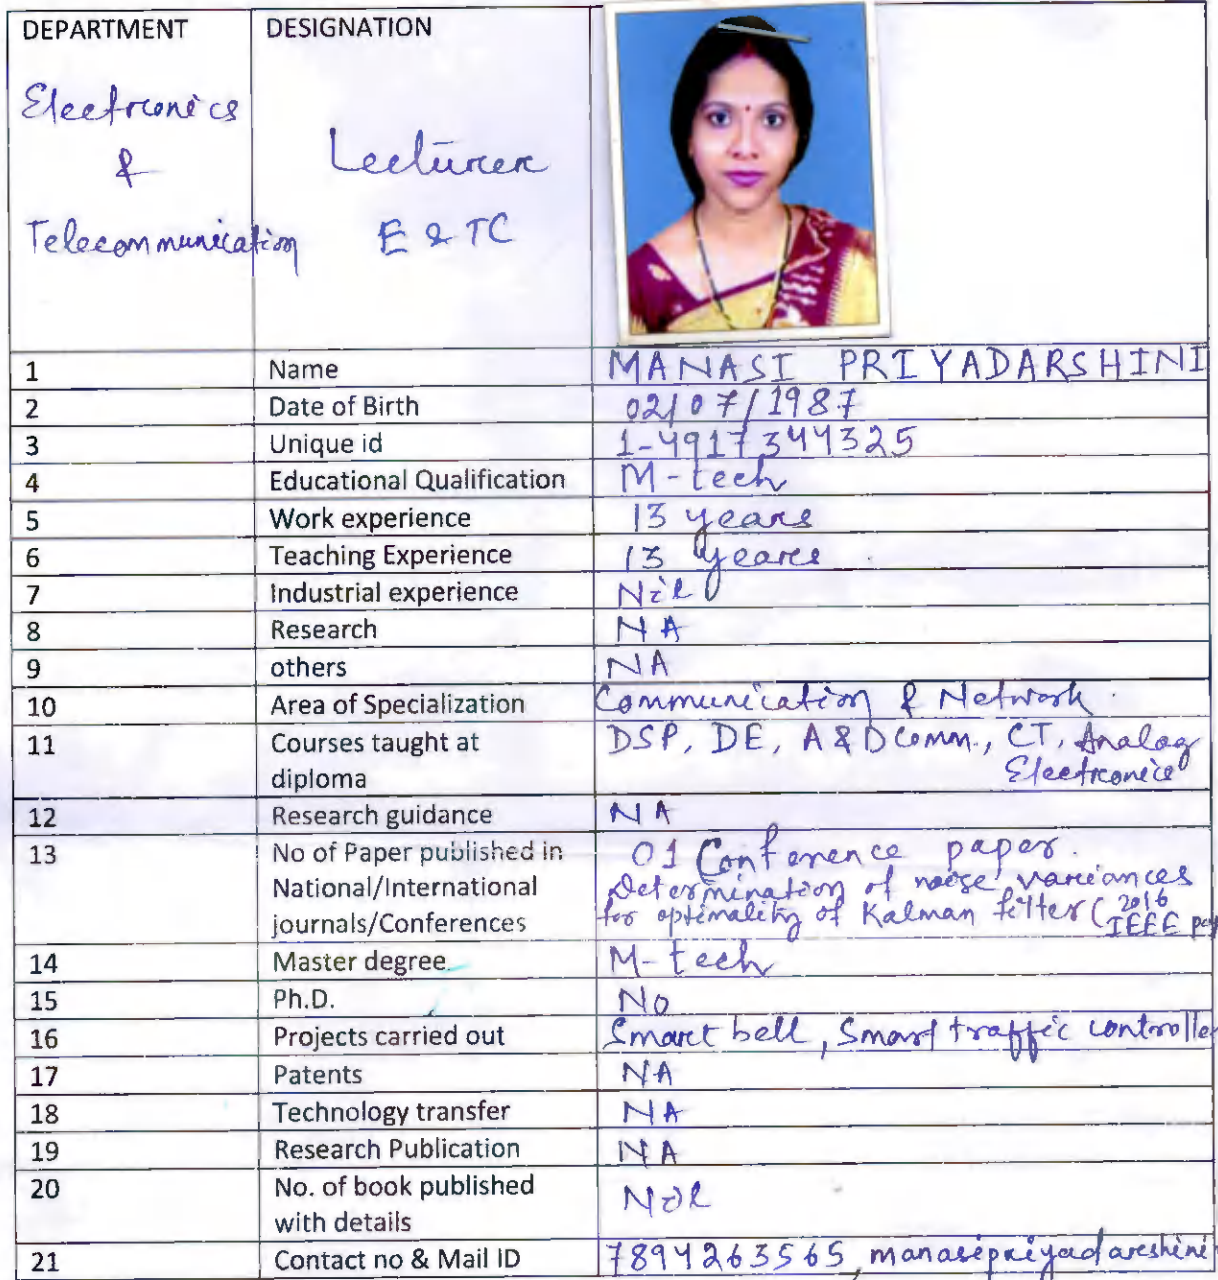 DEPARTMENT DESIGNATION
Electronics
& Lecturer
Telecommunication E & TC
1 Name MANASI PRIYADARSHINI
2 Date of Birth 02/07/1987
3 Unique id 1-4917344325
4 Educational Qualification M-tech
5 Work experience 13 years
6 Teaching Experience 13 years
7 Industrial experience Nil
8 Research NA
9 others NA
10 Area of Specialization Communication & Network.
11 Courses taught at DSP, DE, A & D Comm., CT, Analog
diploma Electronics
12 Research guidance NA
13 No of Paper published in 01 Conference paper.
National/International Determination of noise variances
journals/Conferences for optimality of Kalman filter (2016
IEEE
14 Master degree. M-tech
15 Ph.D. No
16 Projects carried out Smart bell, Smart traffic controller
17 Patents NA
18 Technology transfer NA
19 Research Publication NA
20 No. of book published Nil
with details
21 Contact no & Mail ID 7894263565, manasipriyadarshini